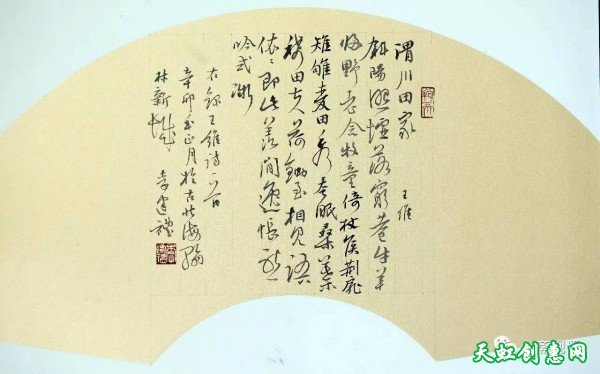 渭川田家
王維
斜陽照墟落窮巷牛羊
歸野老念牧童倚杖候荆扉
雉雊麥秀蚕眠桑葉
稀田夫荷鋤至相見語
依〻即此羨閒逸悵然
吟式微
右錄王維詩一首
辛卯年正月於古北海
林新
天虹创意网